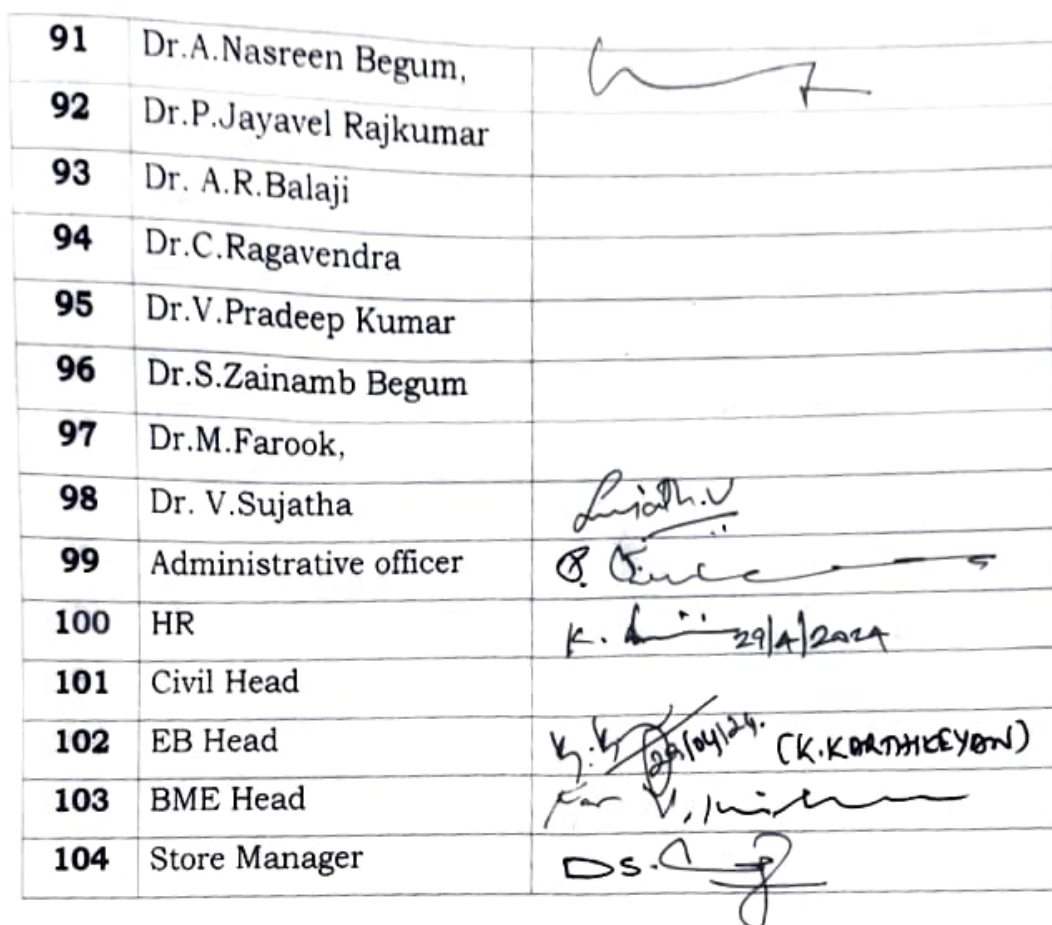 91 Dr.A.Nasreen Begum,
92 Dr.P.Jayavel Rajkumar
93 Dr. A.R.Balaji
94 Dr.C.Ragavendra
95 Dr.V.Pradeep Kumar
96 Dr.S.Zainamb Begum
97 Dr.M.Farook,
98 Dr. V.Sujatha Sujath.V
99 Administrative officer
100 HR K. 29/4/2024
101 Civil Head
102 EB Head K.K 29/04/24. (K.KARTHIKEYAN)
103 BME Head For V.
104 Store Manager DS.